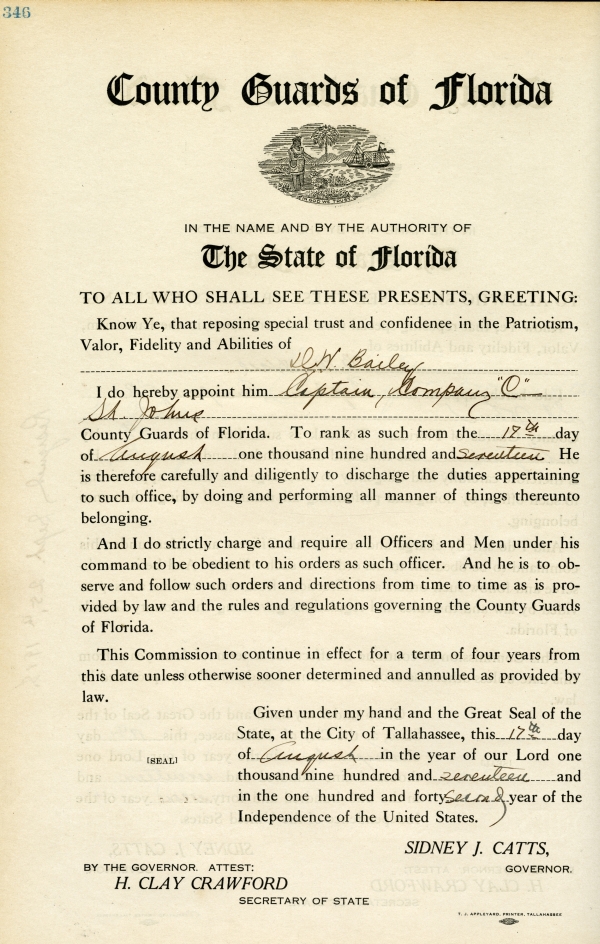 346
County Guards of Florida
IN THE NAME AND BY THE AUTHORITY OF
The State of Florida
TO ALL WHO SHALL SEE THESE PRESENTS, GREETING:
Know Ye, that reposing special trust and confidenee in the Patriotism,
Valor, Fidelity and Abilities of
D W. Bailey
I do hereby appoint him Captain, Company "C"
St. Johns
County Guards of Florida. To rank as such from the 17th day
of August one thousand nine hundred and seventeen He
is therefore carefully and diligently to discharge the duties appertaining
to such office, by doing and performing all manner of things thereunto
belonging.
And I do strictly charge and require all Officers and Men under his
command to be obedient to his orders as such officer. And he is to ob-
serve and follow such orders and directions from time to time as is pro-
vided by law and the rules and regulations governing the County Guards
of Florida.
This Commission to continue in effect for a term of four years from
this date unless otherwise sooner determined and annulled as provided by
law.
Given under my hand and the Great Seal of the
State, at the City of Tallahassee, this 17th day
[SEAL] of August in the year of our Lord one
thousand nine hundred and seventeen and
in the one hundred and forty second year of the
Independence of the United States.
SIDNEY J. CATTS,
BY THE GOVERNOR. ATTEST: GOVERNOR.
H. CLAY CRAWFORD
SECRETARY OF STATE
T. J. APPLEYARD, PRINTER, TALLAHASSEE